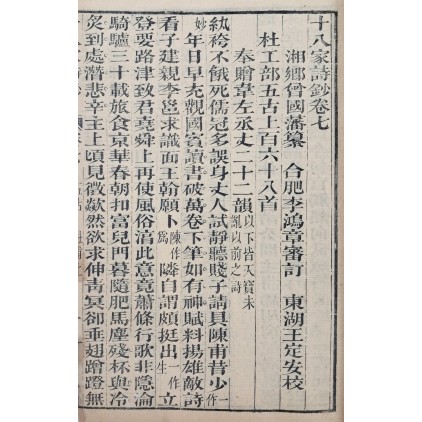 十八家詩鈔卷七
湘鄉曾國藩纂 合肥李鴻章審訂 東湖王定安校
杜工部五古上百六十八首
奉贈韋左丞丈二十二韻 以下皆天寶未亂以前之詩
紈袴不餓死儒冠多誤身丈人試靜聽賤子請具陳甫昔少一作
妙年日早充觀國賓讀書破萬卷下筆如有神賦料揚雄敵詩
看子建親李邕求識面王翰願卜陳作為隣自謂頗挺出一作生立
登要路津致君堯舜上再使風俗淳此意竟蕭條行歌非隱淪
騎驢三十載旅食京華春朝扣富兒門暮隨肥馬塵殘杯與冷
炙到處潛悲辛主上頃見徵歘然欲求伸青冥卻垂翅蹭蹬無